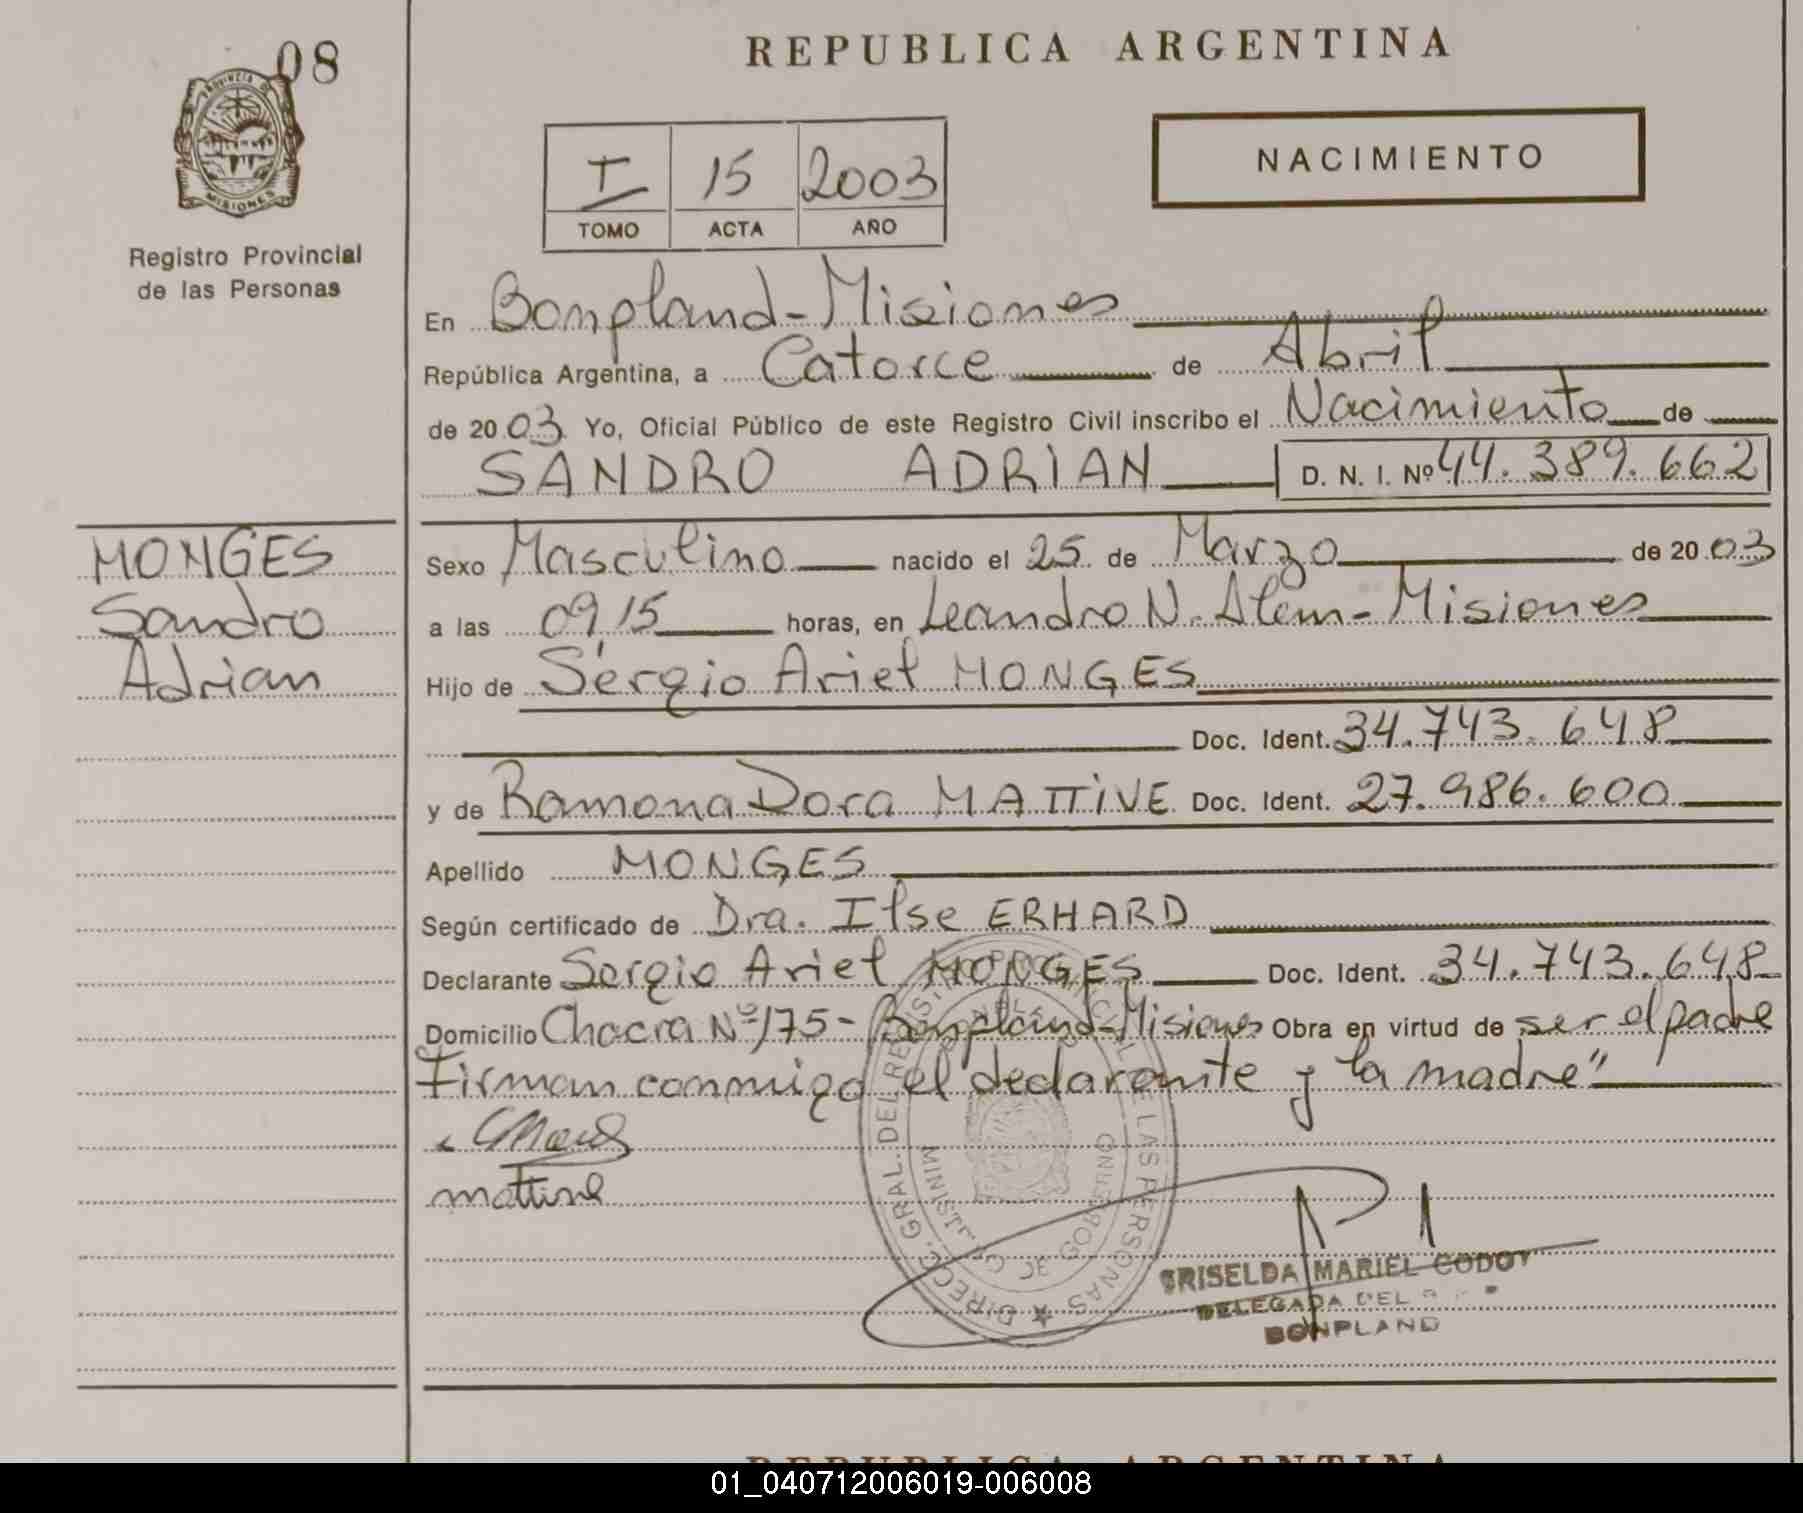 08
REPUBLICA ARGENTINA
PROVINCIA DE
MISIONES
Registro Provincial
de las Personas
I 15 2003
TOMO ACTA AÑO
NACIMIENTO
En Bonpland-Misiones
República Argentina, a Catorce de Abril
de 2003 Yo, Oficial Público de este Registro Civil inscribo el Nacimiento de
SANDRO ADRIAN D. N. I. Nº 44.389.662
MONGES
Sandro
Adrian
Sexo Masculino nacido el 25 de Marzo de 2003
a las 09,15 horas, en Leandro N. Alem-Misiones
Hijo de Sergio Ariel MONGES
Doc. Ident. 34.743.648
y de Ramona Dora MATTIVE Doc. Ident. 27.986.600
Apellido MONGES
Según certificado de Dra. Ilse ERHARD
Declarante Sergio Ariel MONGES Doc. Ident. 34.743.648
Domicilio Chacra Nº 175- Bonpland-Misiones Obra en virtud de ser el padre
Firman conmigo el declarante y la madre"
mattive
DIRECC. GRAL. DEL REGISTRO PROVINCIAL DE LAS PERSONAS
MINISTERIO DE GOBIERNO
GRISELDA MARIEL GODOY
DELEGADA DEL
BONPLAND
REPUBLICA ARGENTINA
01_040712006019-006008